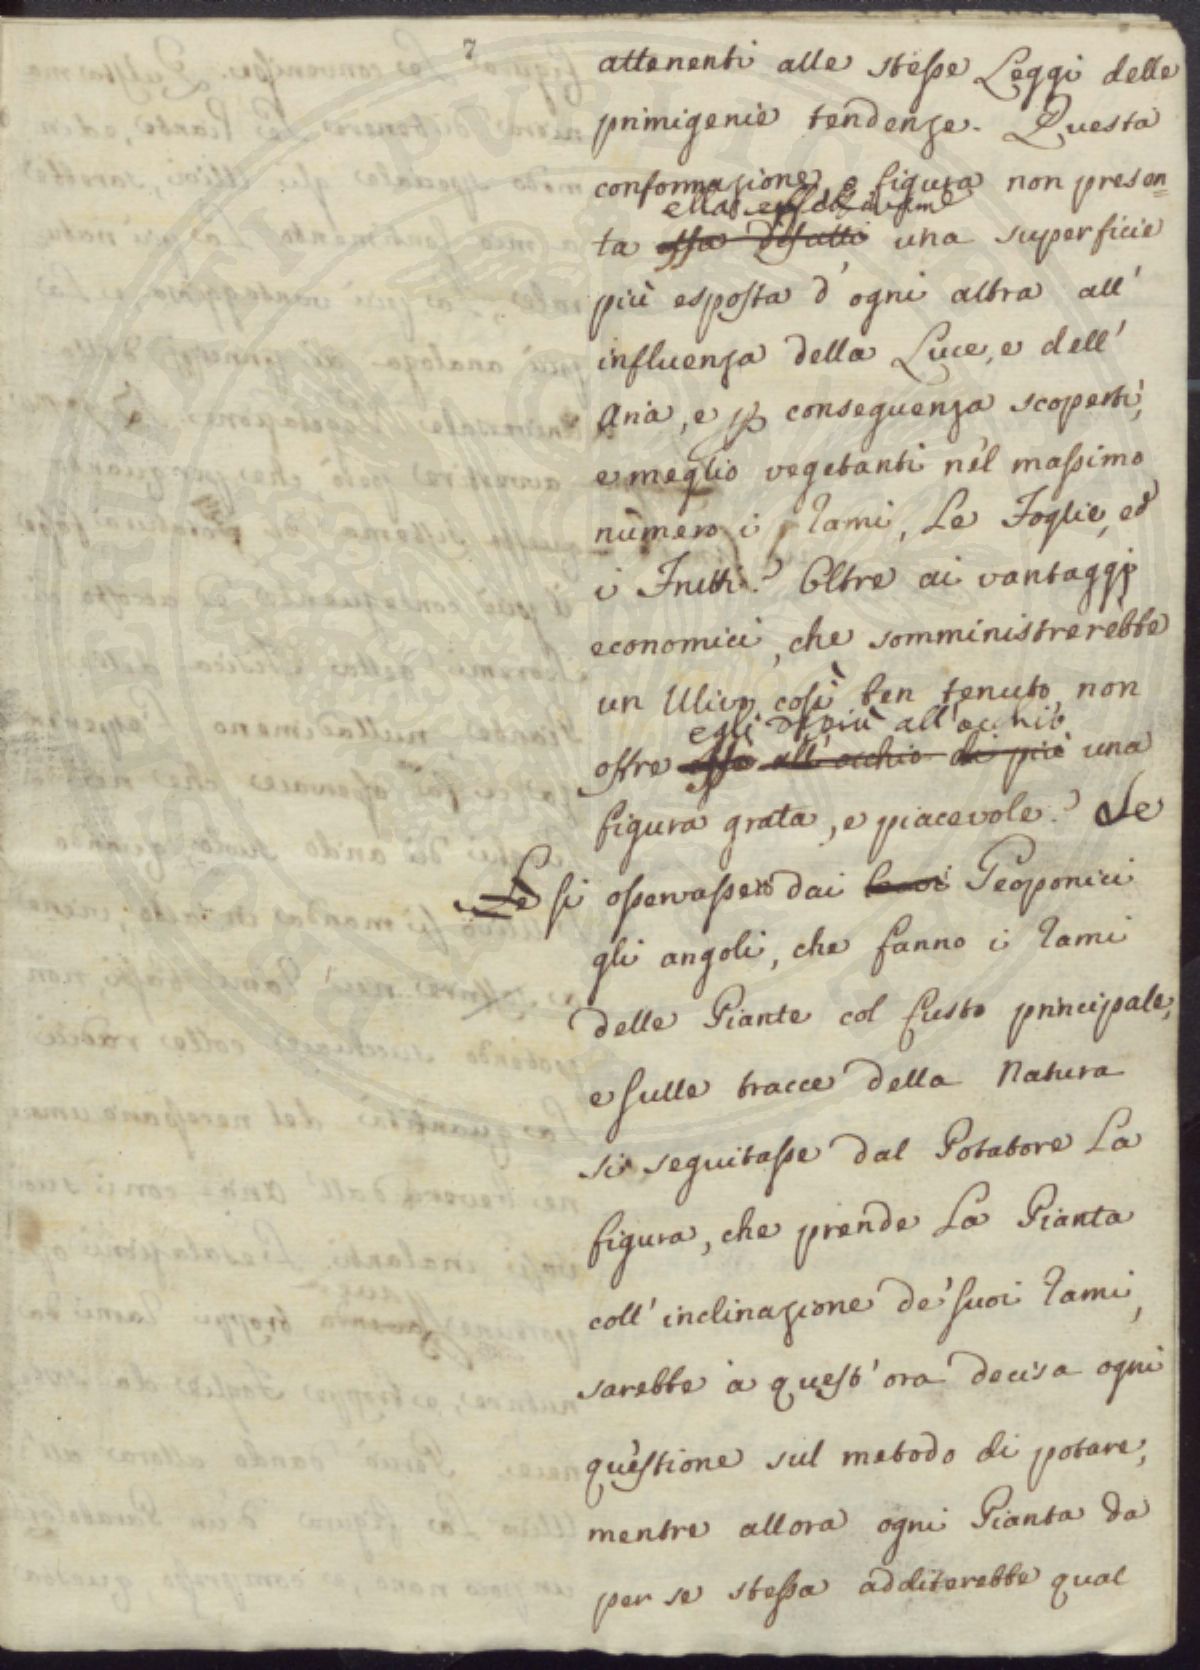 7
attenenti alle stesse Leggi delle
primigenie tendenze. Questa
conformazione, e figura non presen=
ella
ta essa difatti una superficie
più esposta d'ogni altra all'
influenza della Luce, e dell'
Aria, e p conseguenza scoperti,
e meglio vegetanti nel massimo
numero i Rami, Le Foglie, ed
i Frutti? Oltre ai vantaggi
economici, che somministrerebbe
un Ulivo così ben tenuto non
egli di più all'occhio
offre esso all'occhio di più una
figura grata, e piacevole? Se
Se si osservassero dai Geoponici
gli angoli, che fanno i Rami
delle Piante col fusto principale,
e sulle tracce della Natura
si seguitasse dal Potatore La
figura, che prende La Pianta
coll'inclinazione de' suoi Rami,
sarebbe a quest'ora decisa ogni
questione sul metodo di potare,
mentre allora ogni Pianta da
per se stessa additerebbe qual